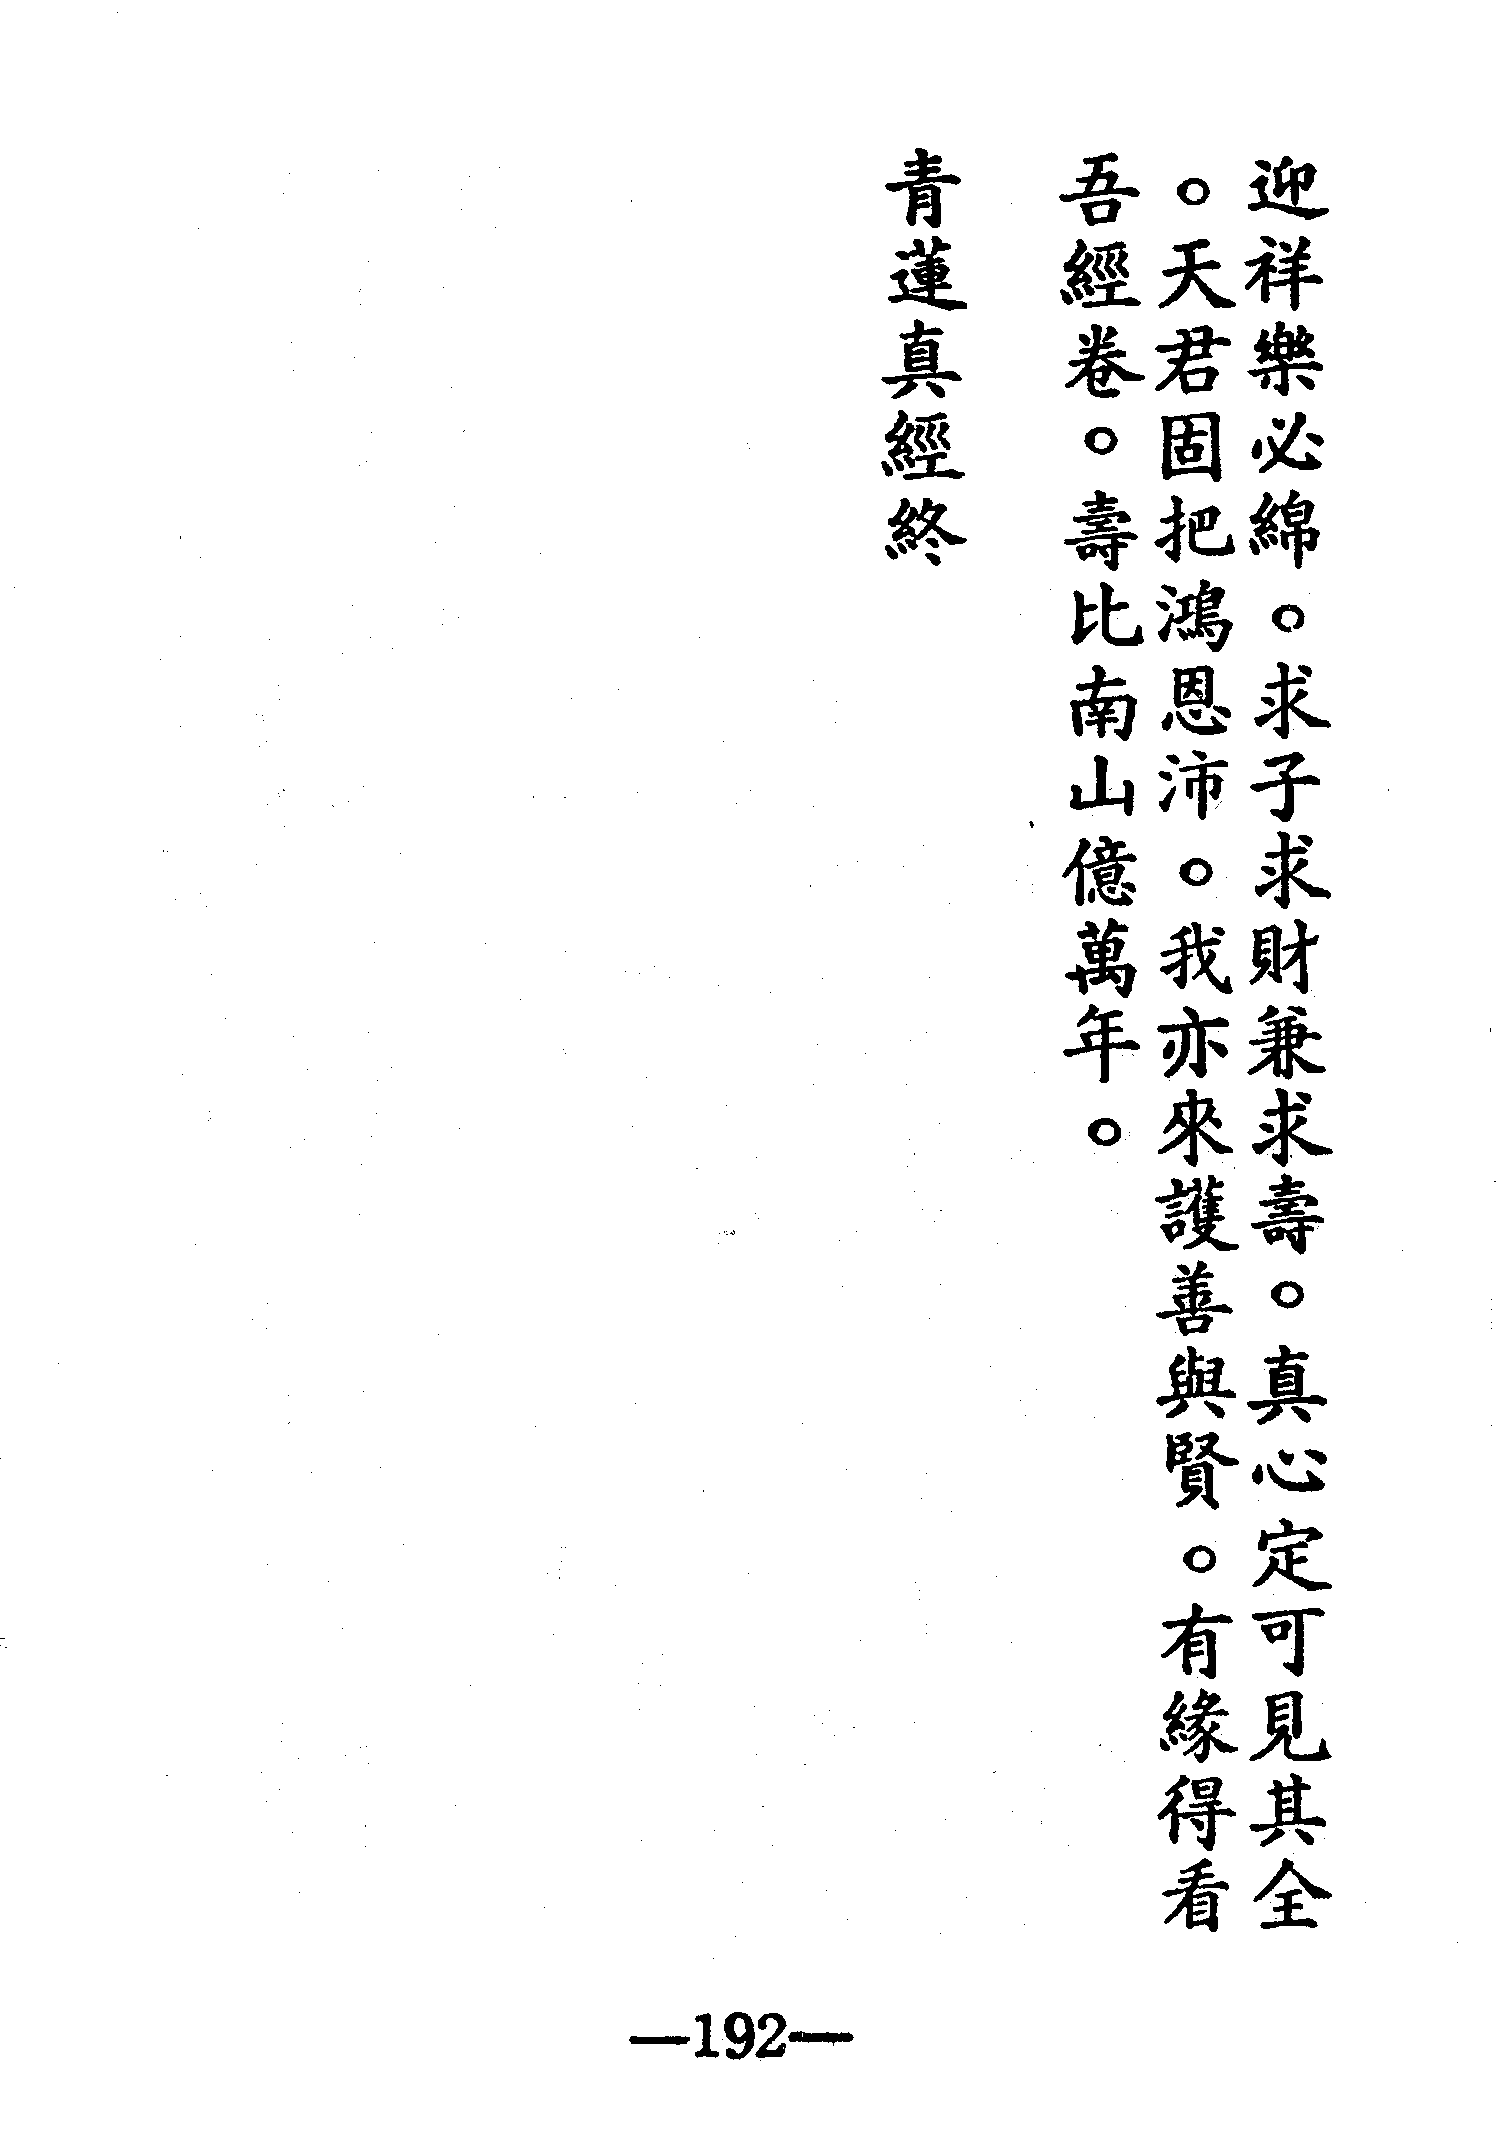 迎祥樂必綿。求子求財兼求壽。真心定可見其全
。天君固把鴻恩沛。我亦來護善與賢。有緣得看
吾經卷。壽比南山億萬年。
青蓮真經終
—192—